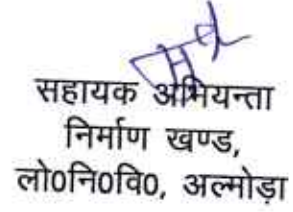 सहायक अभियन्ता
निर्माण खण्ड,
लो०नि०वि०, अल्मोड़ा